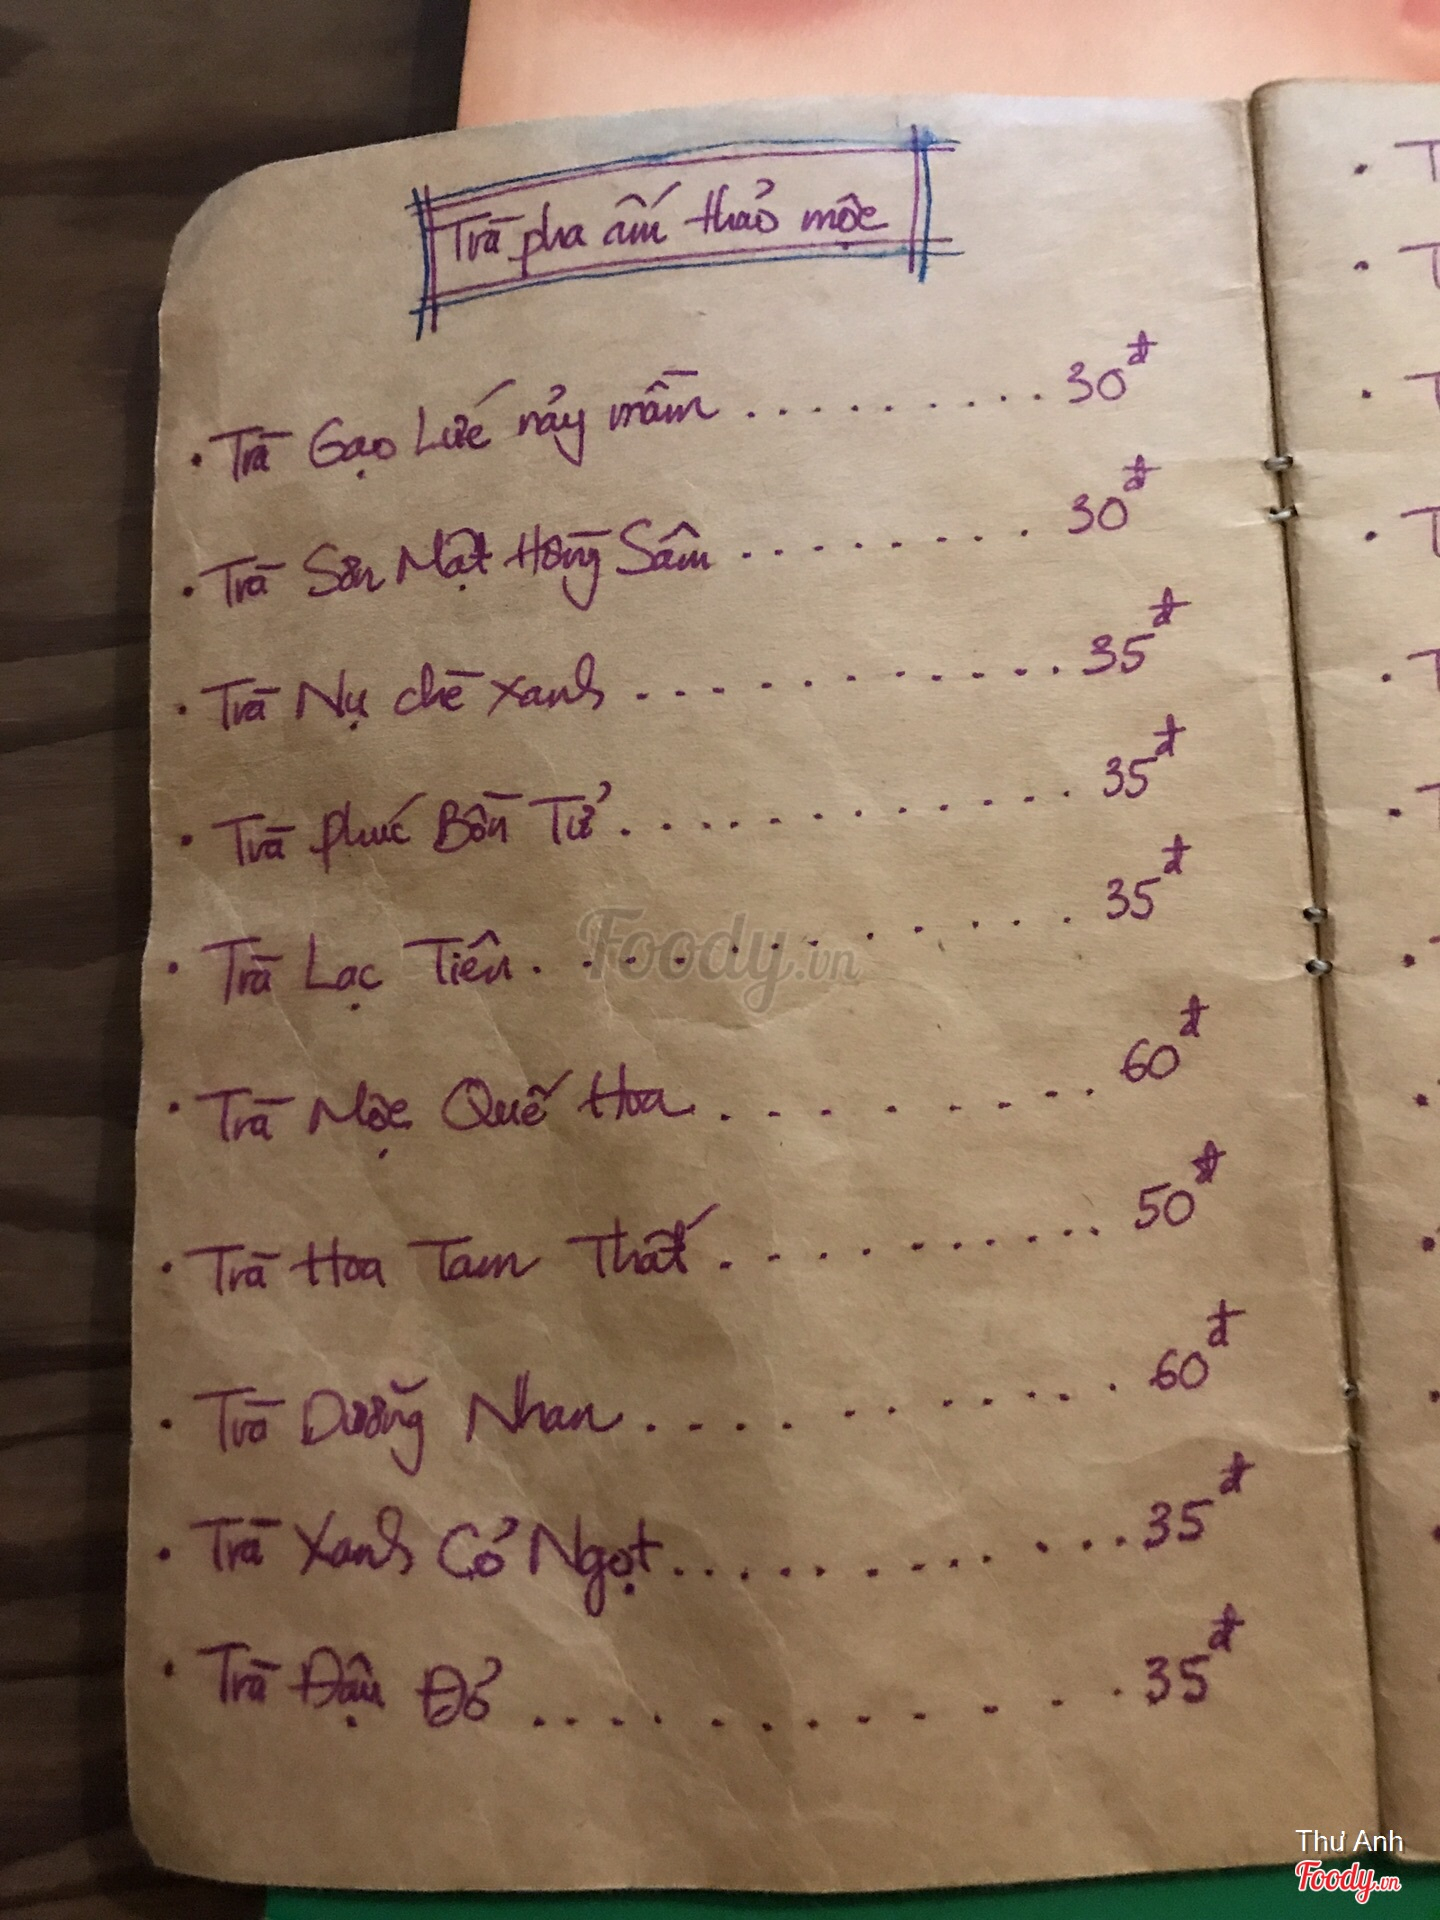 Trà pha ấm thảo mộc
• Trà Gạo Lứt nảy mầm . . . . . . . . . . 30đ
• Trà Sơn Mật Hồng Sâm . . . . . . . . . 30đ
• Trà Nụ chè xanh . . . . . . . . . . . 35đ
• Trà Phúc Bồn Tử . . . . . . . . . . . . 35đ
• Trà Lạc Tiên . . . . . . . . . . . . 35đ
• Trà Mộc Quế Hoa . . . . . . . . . 60đ
• Trà Hoa Tam Thất . . . . . . . . . . . 50đ
• Trà Dưỡng Nhan . . . . . . . . . . . 60đ
• Trà Xanh Cỏ Ngọt . . . . . . . . . . . . 35đ
• Trà Đậu Đỏ . . . . . . . . . . . . 35đ
Foody.vn
Thư Anh
Foody.vn